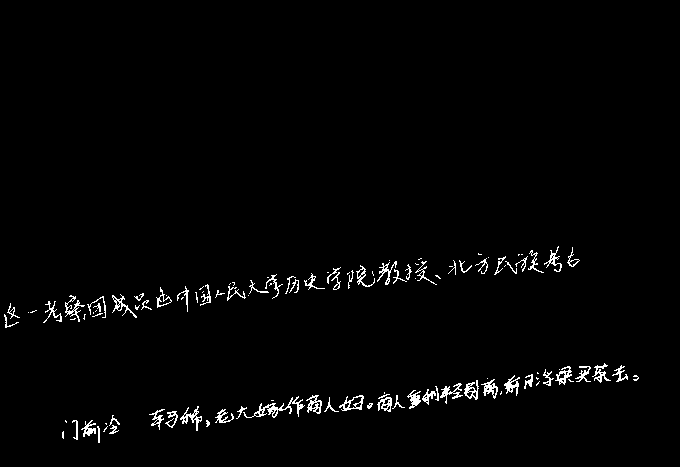 这一考察团成员由中国人民大学历史学院教授、北方民族考古
门前冷 车马稀,老大嫁作商人妇。商人重利轻别离,前月浮梁买茶去。